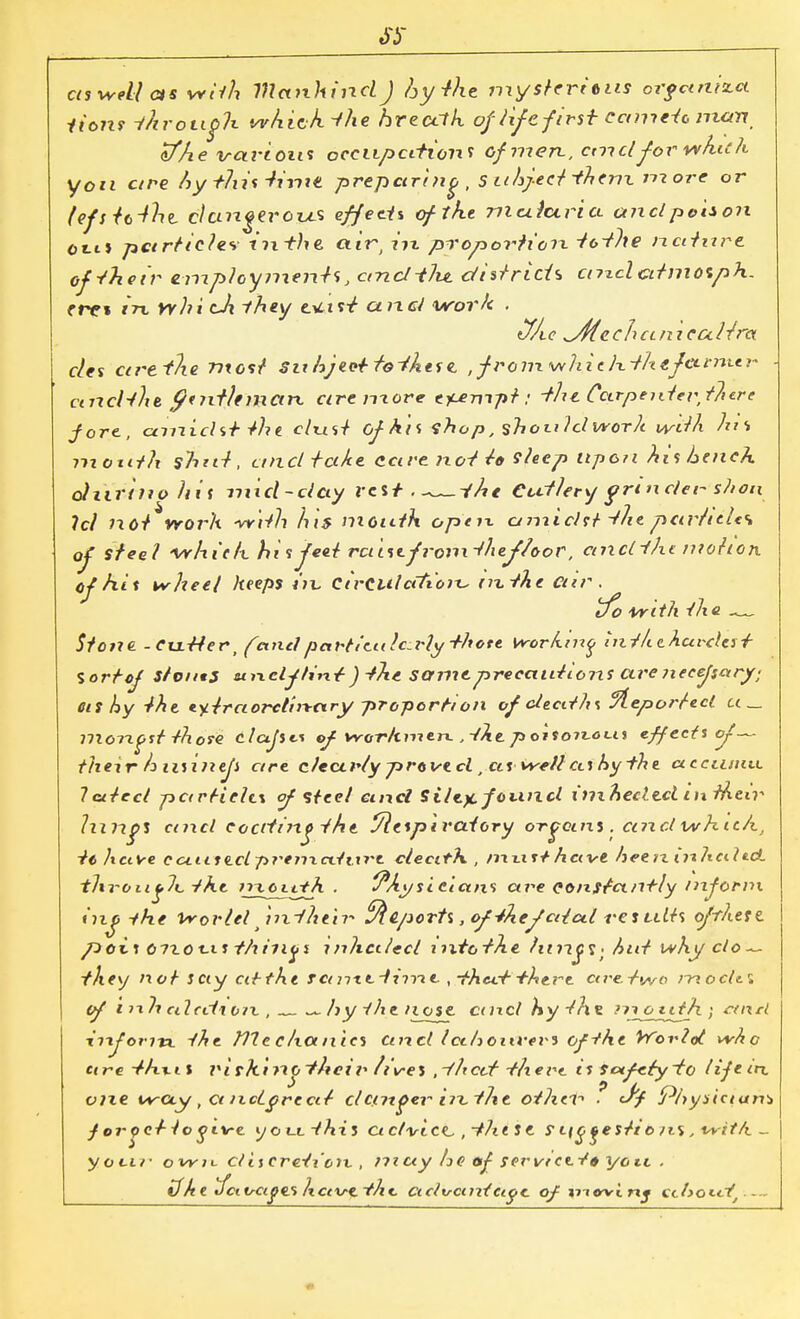 55
as well as with Mankind) by the mysterious organiza
tions through which the breath of life first came to man
The various occupations of men, and for which
you are by this time preparing, subject them more or
less to the dangerous effects of the malaria and poison
ous particles in the air, in proportion to the nature
of their employments, and the districts and atmosph-
eres in which they exist and work.
The Mechanical tra
des are the most subject to these, from which the farmer
and the gentleman are more exempt; the Carpenter, there
fore, amidst the dust of his shop, should work with his
mouth shut, and take care not to sleep upon his bench
during his mid-day rest. — the Cutlery grinder shou
ld not work with his mouth open amidst the particles
of steel which his feet raise from the floor, and the motion
of his wheel keeps in Circulation in the air.
To with the —
Stone-Cutter, (and particularly those working in the hardest
sort of stones and flint) the same precautions are necessary;
as by the extraordinary proportion of deaths Reported a—
mongst those classes of workmen, the poisonous effects of—
their business are clearly proved, as well as by the accumu
lated particles of steel and Silex found imbedded in their
lungs and coating the Respiratory organs. and which,
to have caused premature death, must have been inhaled
through the mouth. Physicians are constantly inform
ing the World, in their Reports, of the fatal results of these
poisonous things inhaled into the lungs; but why do—
they not say at the same time, that there are two modes
of inhalation, — — by the nose and by the mouth; and
inform the Mechanics and labourers of the World who
are thus risking their lives, that there is safety to life in
one way, and great danger in the other? If Physicians
forget to give you this advice, these suggestions, with—
your own discretion, may be of service to you.
The Savages have the advantage of moving about, —